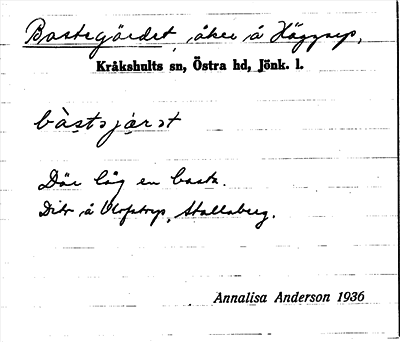 Bastegärdet, åker å Häggryp,
Kråkshults sn, Östra hd, Jönk. l.
Där låg en basta.
Dito å Ulvstorp, Stallaberg.
Annalisa Anderson 1936